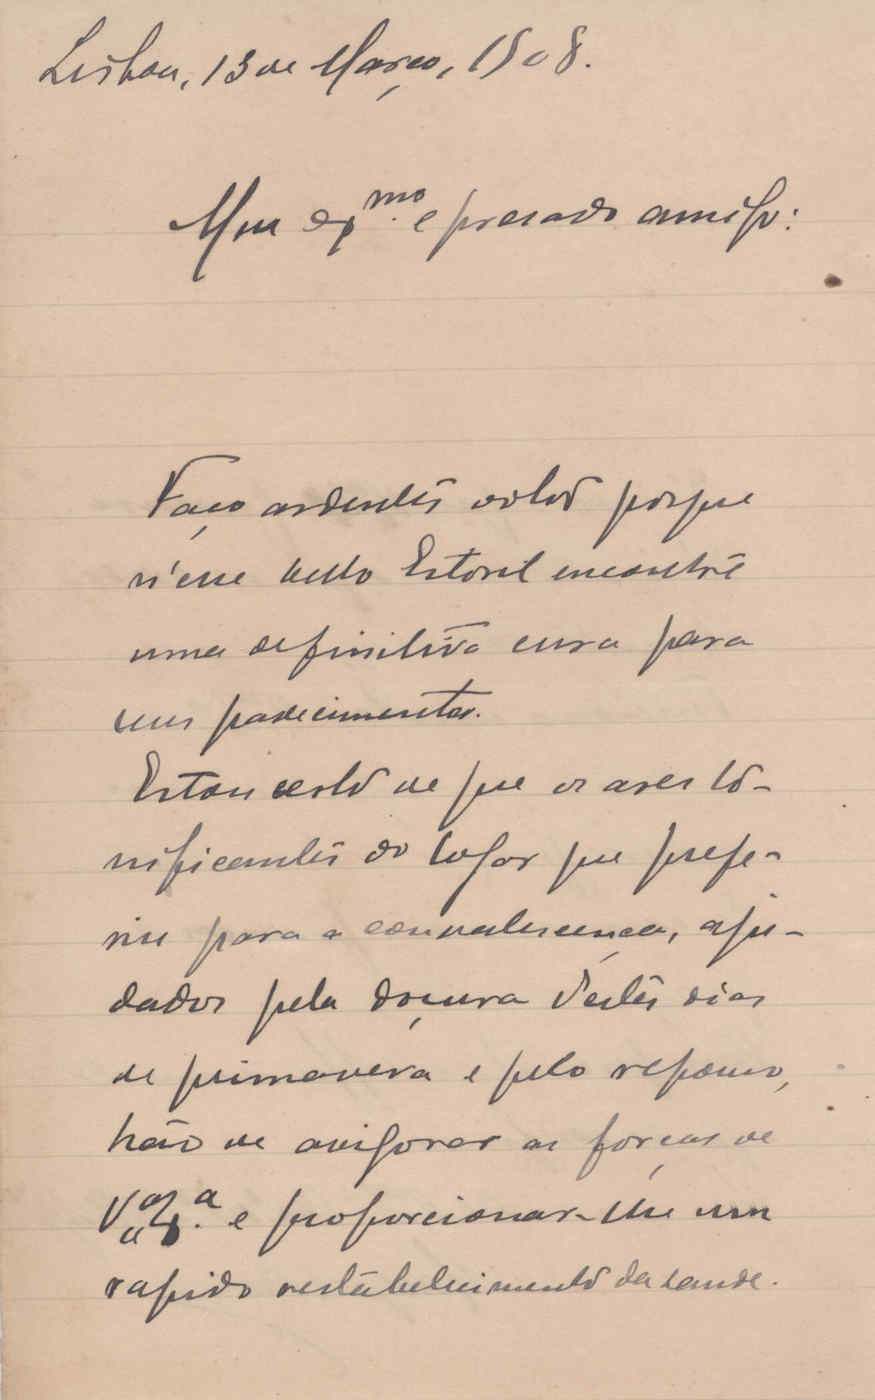 Lisboa, 13 de Março, 1908.
Meu exmo. e presado amigo:
Faço ardentes votos porque
n'esse bello Estoril encontre
uma definitiva cura para
seus padecimentos.
Estou certo de que os ares to-
nificantes do logar que prefe-
riu para a convalescença, aju-
dados pela doçura d'estes dias
de primavera e pelo repouso,
hão de avigorar as forças de
V. Exa. e proporcionar-lhe um
rapido restabelecimento da saude.